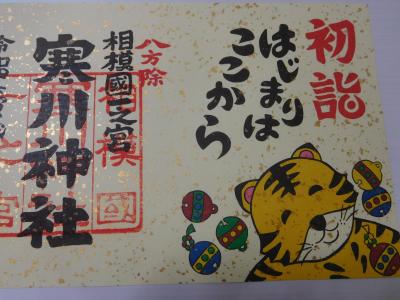 初詣
はじまりは
ここから
八方除
相模國一之宮
寒川神社